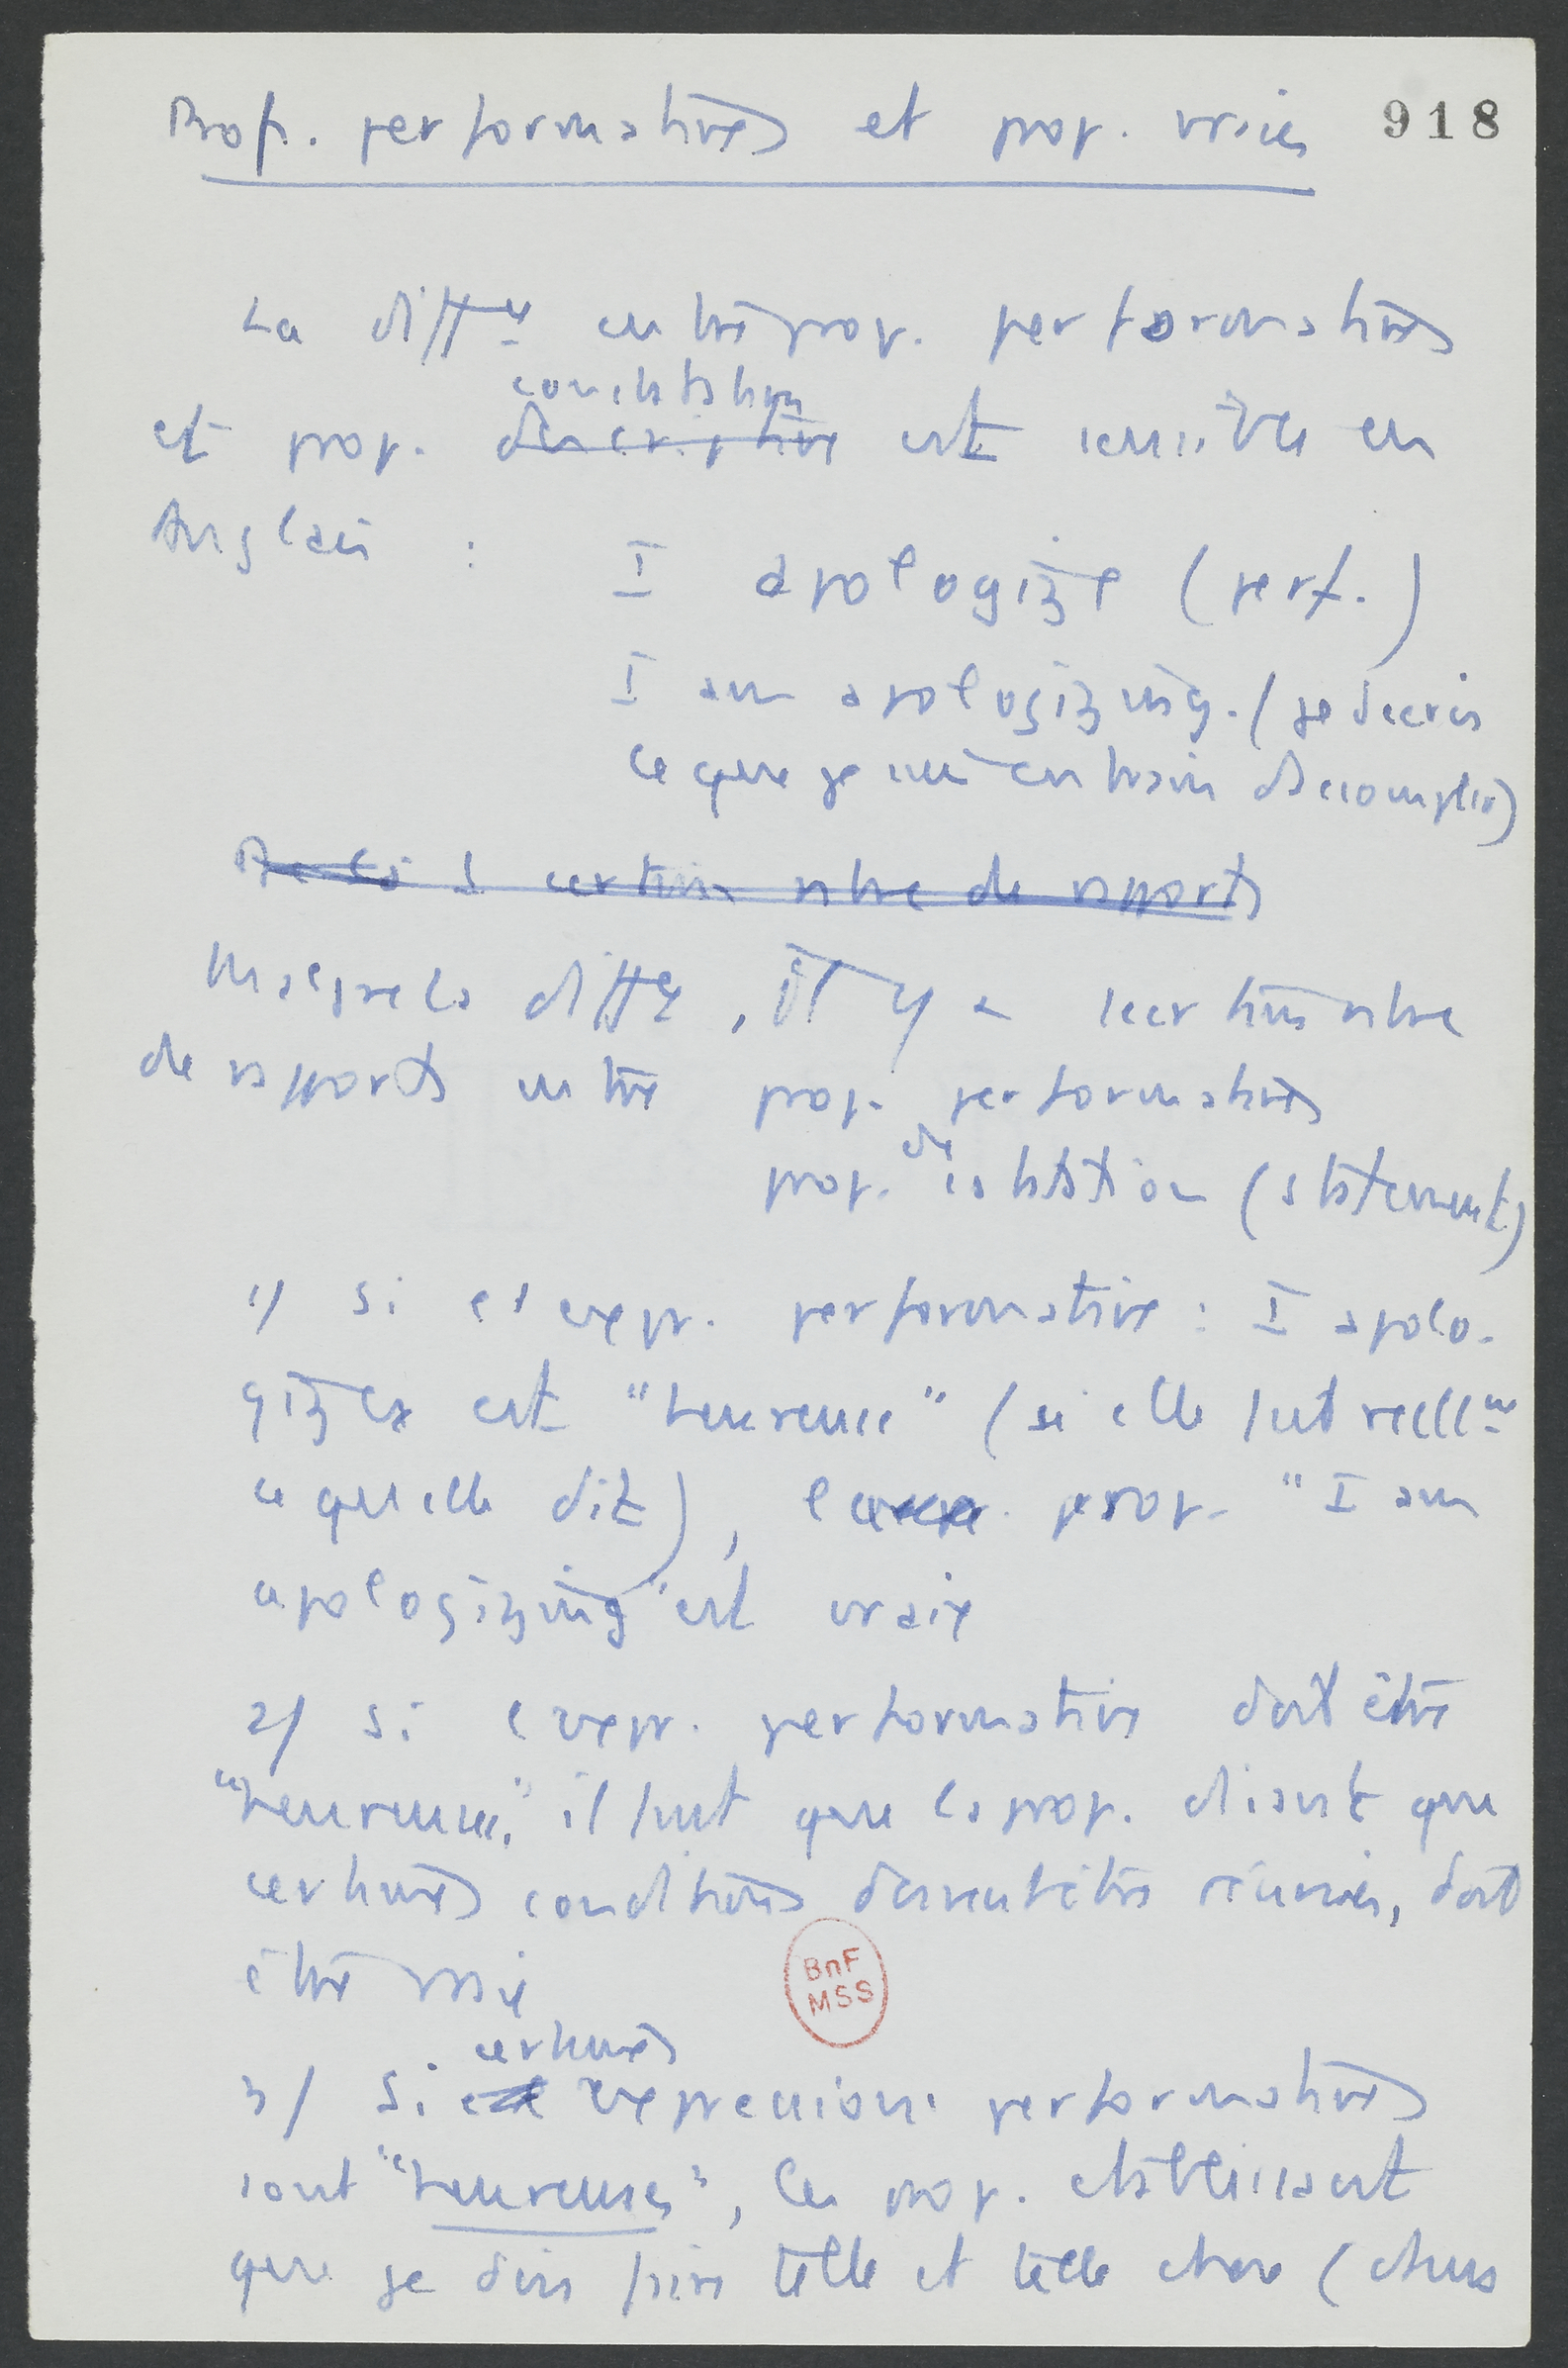 Prop. performatives et prop. vraies 918
La diffce entre prop. performatives
constatation
et prop. descriptive est sensible en
Anglais :
I apologize (perf.)
I am apologizing. (je décris
ce que je suis en train d'accomplir)
De là 1 certain nbre de rapports
Malgré la diffce, il y a 1 certain nbre
de rapports entre prop. performatives
prop. de cstatation (statement)
1/ Si l'expr. performative : I apolo-
gize est "heureuse" (si elle fait réellmt
ce qu'elle dit), la prop. "I am
apologizing" est vraie
2/ Si l'expr. performative doit être
"heureuse", il faut que la prop. disant que
certaines conditions doivent être réunies, doit
être vraie
BnF
MSS
certaines
3/ Si expressions performatives
sont "heureuses", les prop. établissant
que je dois faire telle et telle chose (dans